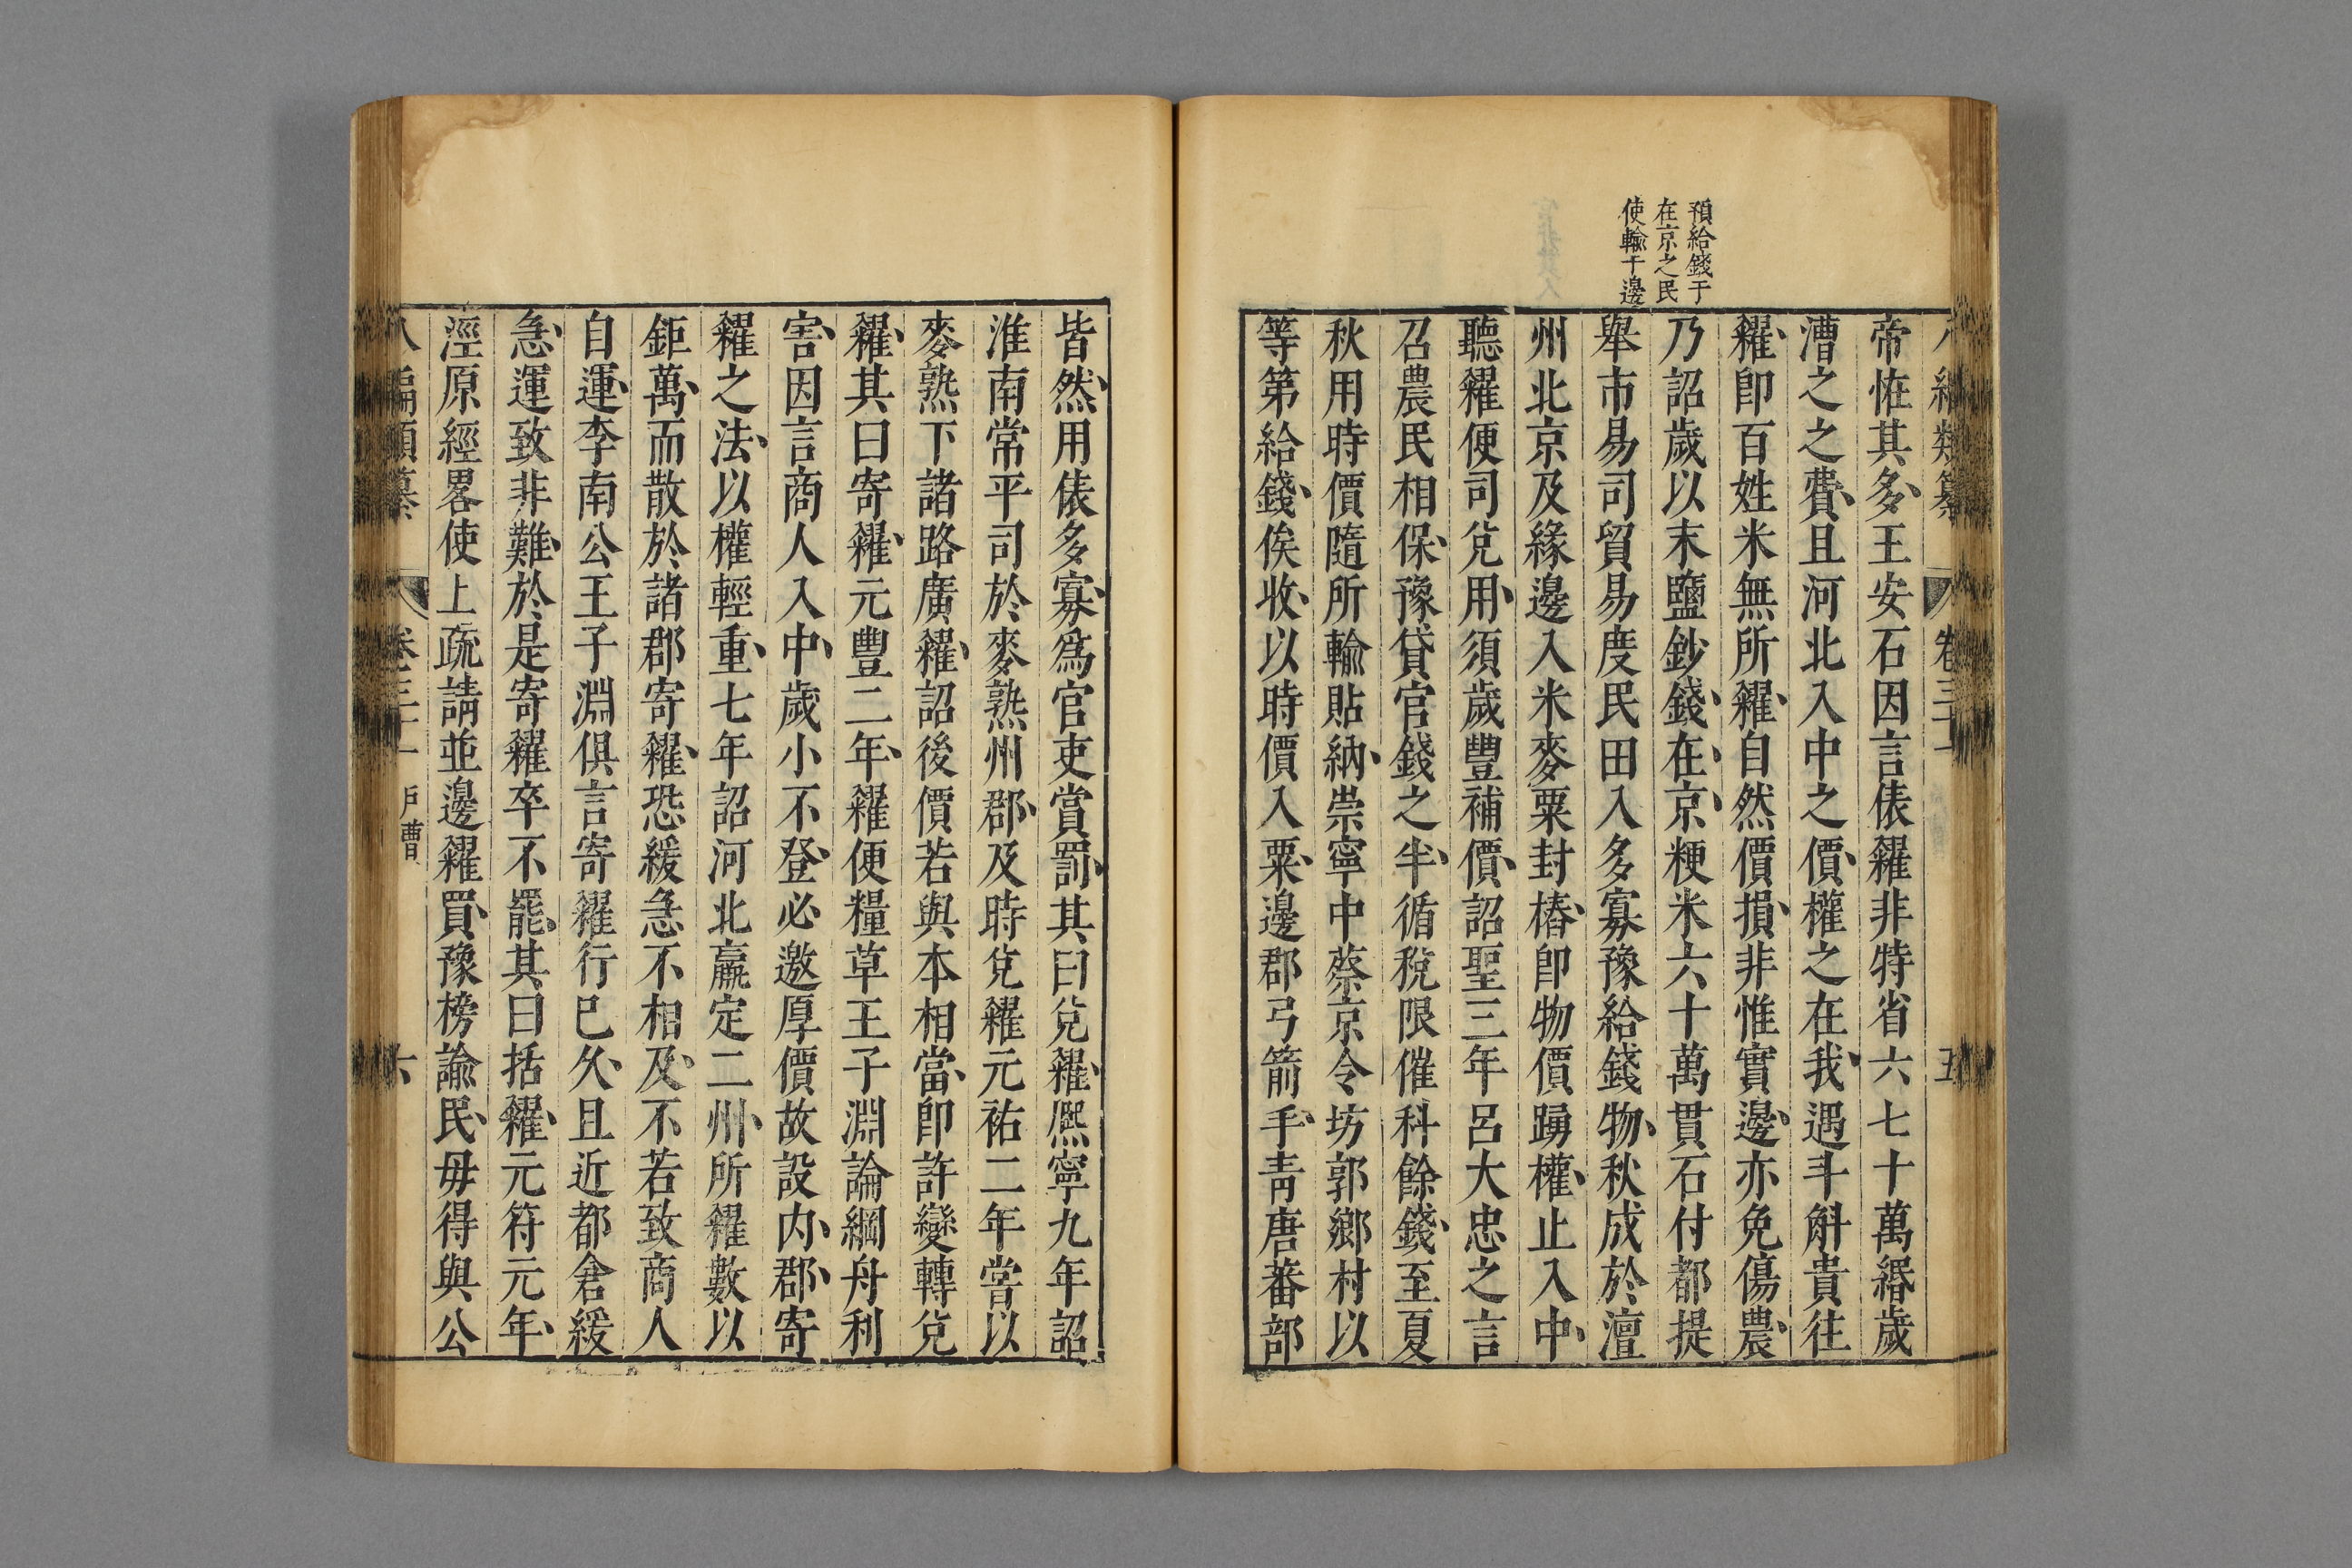 預給錢于
在京之民
使輸于邊
帝恠其多王安石因言俵糴非特省六七十萬緡歲
漕之之費且河北入中之價權之在我遇斗斛貴往
糴卽百姓米無所糴自然價損非惟實邊亦免傷農
乃詔歲以末鹽鈔錢在京粳米六十萬貫石付都提
舉市易司貿易度民田入多寡豫給錢物秋成於澶
州北京及緣邊入米麥粟封樁卽物價踴權止入中
聽糴便司兌用須歲豐補價詔聖三年呂大忠之言
召農民相保豫貸官錢之半循稅限催科餘錢至夏
秋用時價隨所輸貼納崇寧中蔡京令坊郭鄉村以
等第給錢俟收以時價入粟邊郡弓箭手靑唐蕃部
皆然用俵多寡爲官吏賞罰其曰兌糴熈寧九年詔
淮南常平司於麥熟州郡及時兌糴元祐二年嘗以
麥熟下諸路廣糴詔後價若與本相當卽許變轉兌
糴其曰寄糴元豐二年糴便糧草王子淵論綱舟利
害因言商人入中歲小不登必邀厚價故設内郡寄
糴之法以權輕重七年詔河北嬴定二州所糴數以
鉅萬而散於諸郡寄糴恐緩急不相及不若致商人
自運李南公王子淵俱言寄糴行已久且近都倉緩
急運致非難於是寄糴卒不罷其曰括糴元符元年
涇原經畧使上疏請並邊糴買豫榜諭民毋得與公
八編類纂 卷三十一 戶曹 六